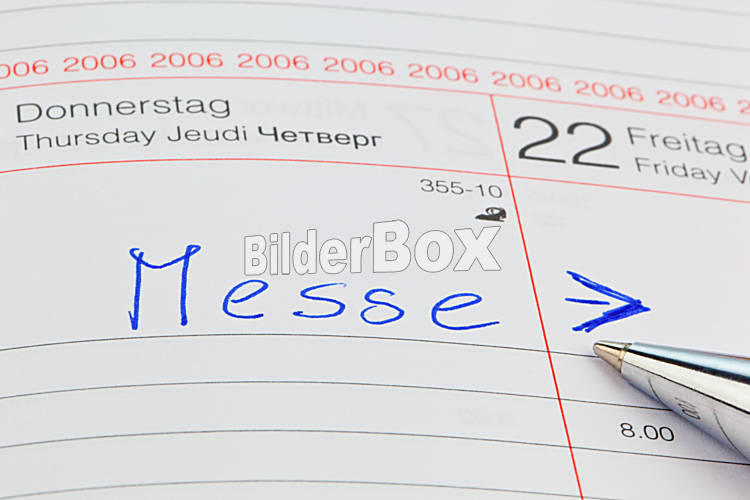 006 2006 2006 2006 2006 2006 2006 2006 2006
Donnerstag
Thursday Jeudi Четверг
22 Freitag
Friday
355-10
BilderBox
Messe
8.00